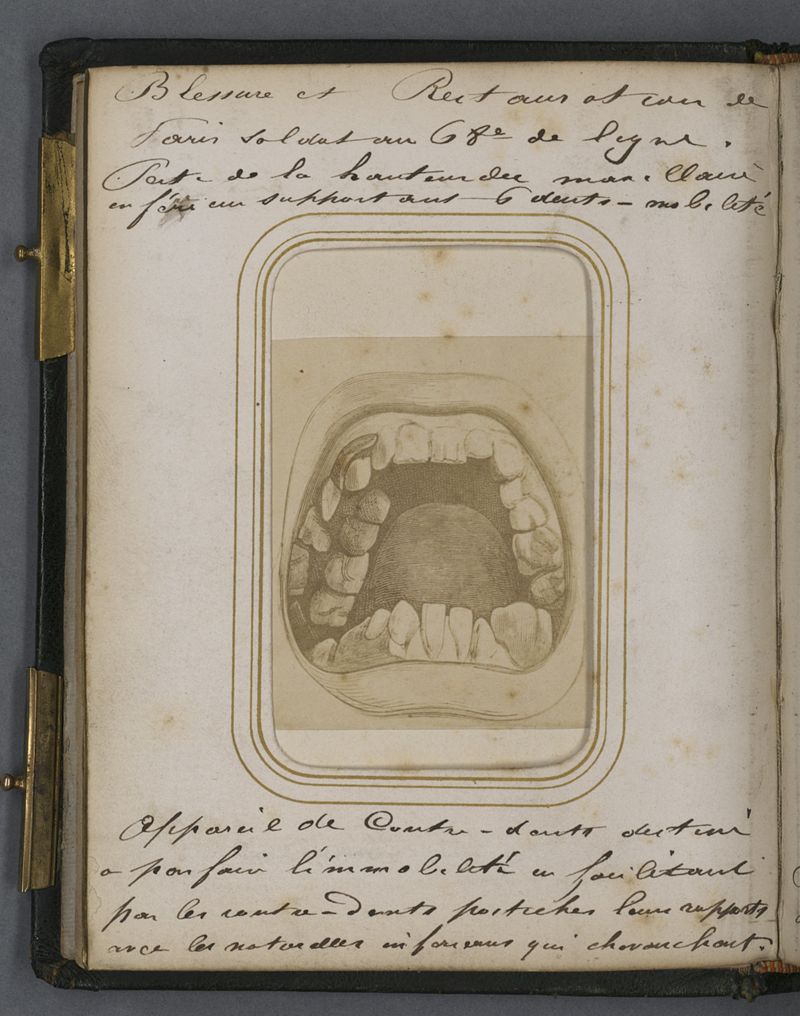 Blessure et Restauration de
Paris soldat au 68e de ligne.
Perte de la hauteur du maxillaire
inférieur supportant 6 dents – mobilité
Appareil de Contre-dents destiné
a parfair l'immobilité en facilitant
par les contre-dents postiches leurs rapports
avec les naturelles inférieures qui chevauchent.